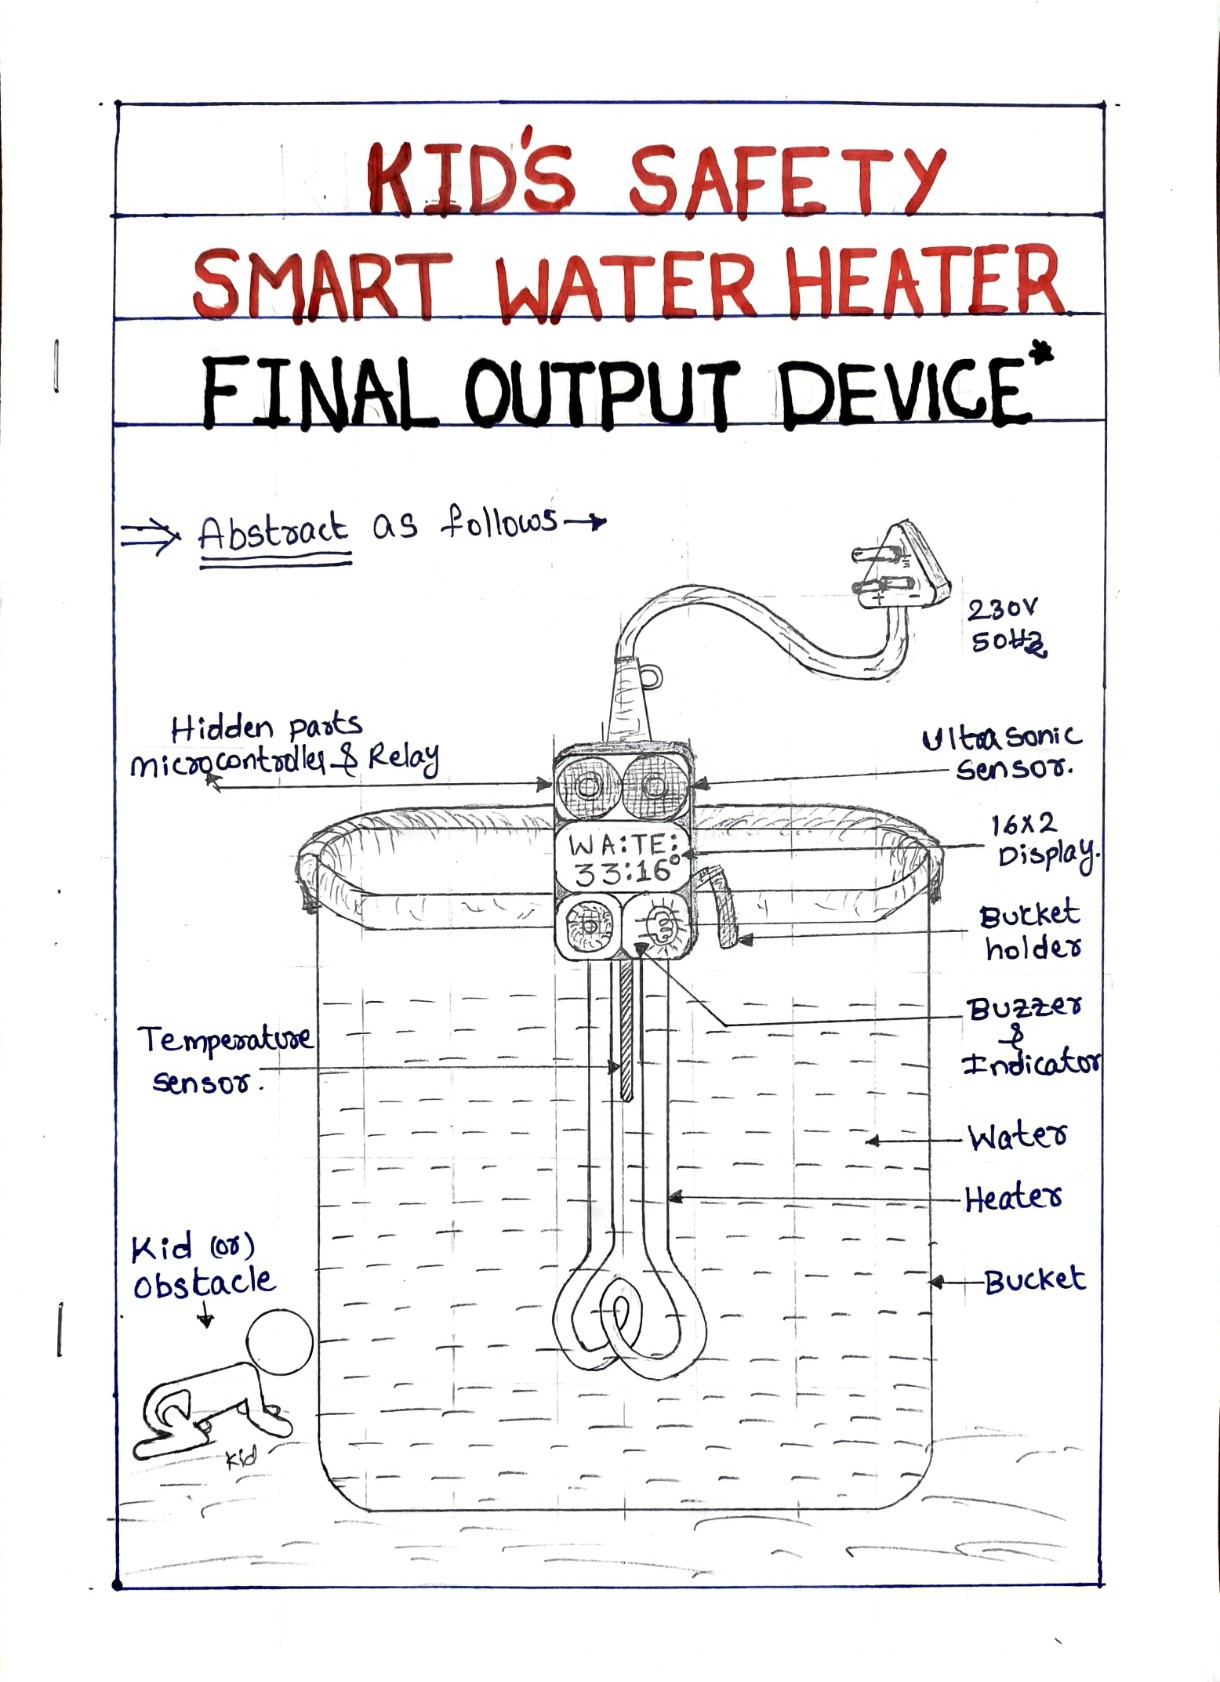 KID'S SAFETY
SMART WATER HEATER
FINAL OUTPUT DEVICE*
⇒ Abstract as follows →
230V
50Hz
Hidden parts
microcontroller & Relay
Ultrasonic
sensor.
WA:TE:
33:16°
16X2
Display.
Bucket
holder
Buzzer
&
Indicator
Temperature
sensor.
Water
Heater
Kid (or)
obstacle
Bucket
Kid